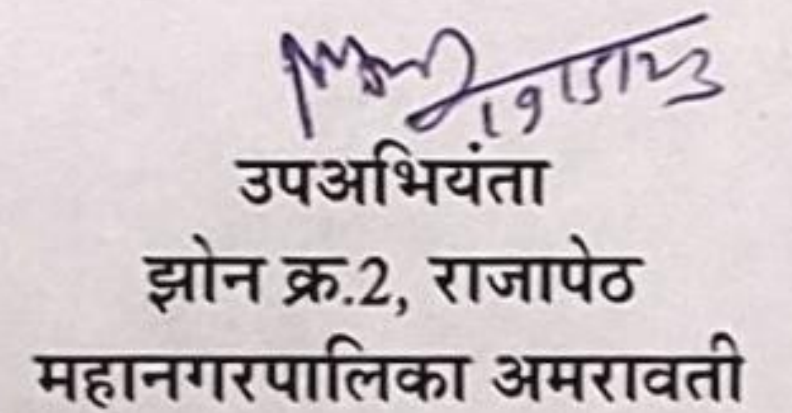 19/5/23
उपअभियंता
झोन क्र.2, राजापेठ
महानगरपालिका अमरावती